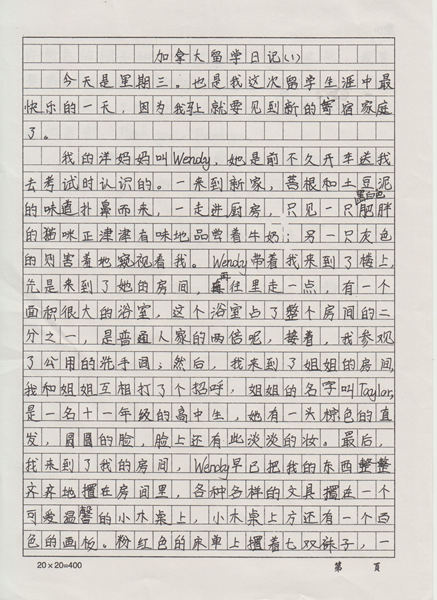 加拿大留学日记(1)
今天是星期三。也是我这次留学生涯中最
快乐的一天，因为我马上就要见到新的寄宿家庭
了。
我的洋妈妈叫Wendy，她是前不久开车送我
去考试时认识的。一来到新家，葛根和土豆泥
的味道扑鼻而来，一走进厨房，只见一只蛋白色肥胖
的猫咪正津津有味地品尝着牛奶；另一只灰色
的则害羞地窥视着我。Wendy带着我来到了楼上，
先是来到了她的房间，再往里走一点，有一个
面积很大的浴室，这个浴室占了整个房间的二
分之一，是普通人家的两倍呢，接着，我参观
了公用的洗手间；然后，我来到了姐姐的房间，
我和姐姐互相打了个招呼，姐姐的名字叫Taylar，
是一名十一年级的高中生，她有一头棕色的直
发，圆圆的脸，脸上还有些淡淡的妆。最后，
我来到了我的房间，Wendy早已把我的东西整整
齐齐地摆在房间里，各种各样的文具摆在一个
可爱温馨的小木桌上，小木桌上方还有一个白
色的画板。粉红色的床单上摆着七双袜子，一
20×20=400 第 页